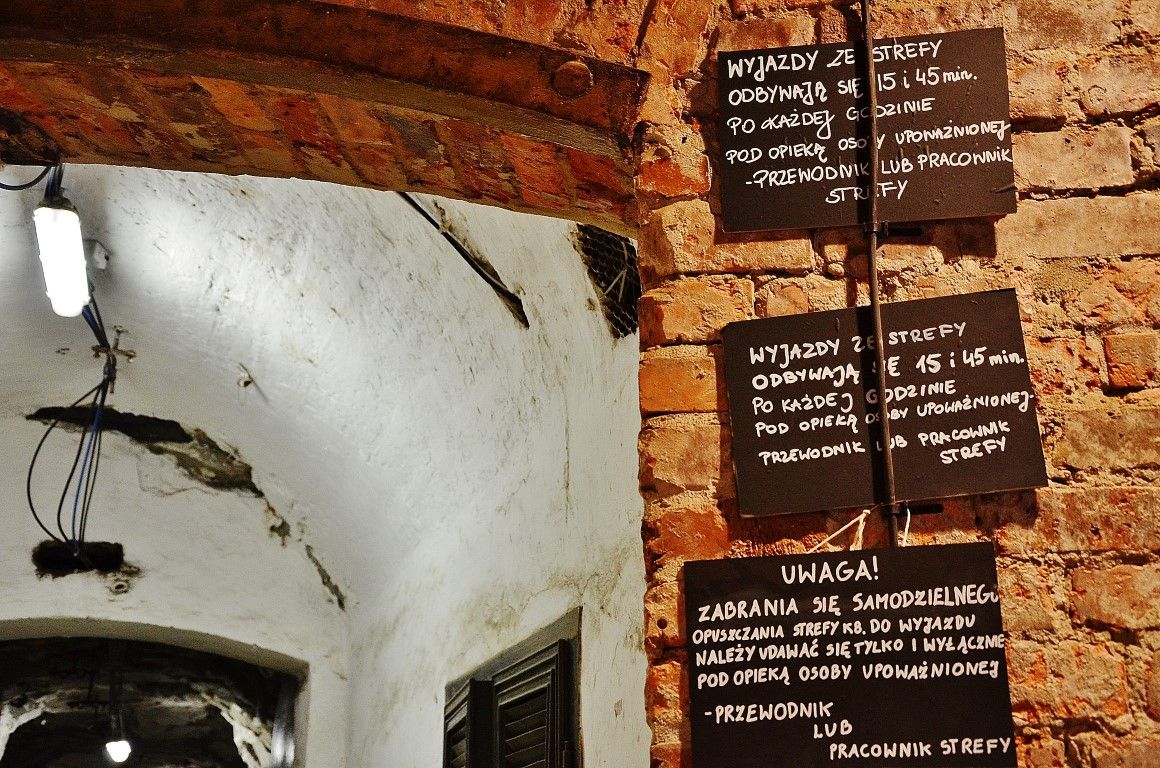 WYJAZDY ZE STREFY
ODBYWAJĄ SIĘ 15 i 45 min.
PO KAŻDEJ GODZINIE
POD OPIEKĄ OSOBY UPOWAŻNIONEJ
-PRZEWODNIK LUB PRACOWNIK
STREFY
WYJAZDY ZE STREFY
ODBYWAJĄ SIĘ 15 i 45 min.
PO KAŻDEJ GODZINIE
POD OPIEKĄ OSOBY UPOWAŻNIONEJ-
PRZEWODNIK LUB PRACOWNIK
STREFY
UWAGA!
ZABRANIA SIĘ SAMODZIELNEGO
OPUSZCZANIA STREFY KB. DO WYJAZDU
NALEŻY UDAWAĆ SIĘ TYLKO I WYŁĄCZNIE
POD OPIEKĄ OSOBY UPOWAŻNIONEJ
-PRZEWODNIK
LUB
PRACOWNIK STREFY